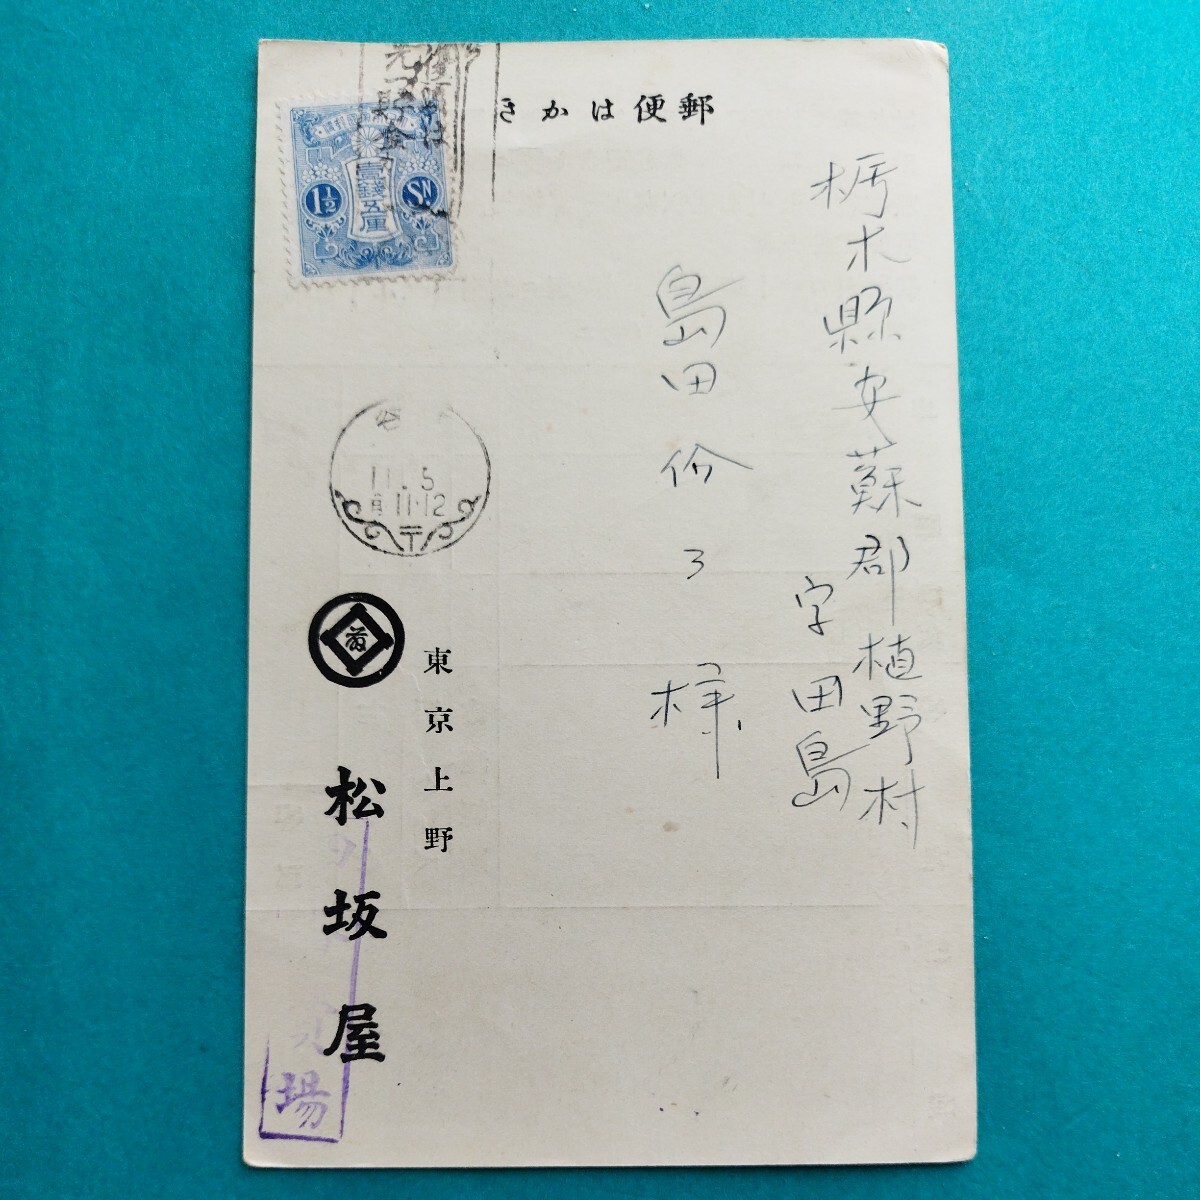 郵便はかき
栃木縣安蘇郡植野村
字田島
島田
様
1½
SN
壹錢五厘
11.5
11-12
〒
東京上野
松坂屋
場